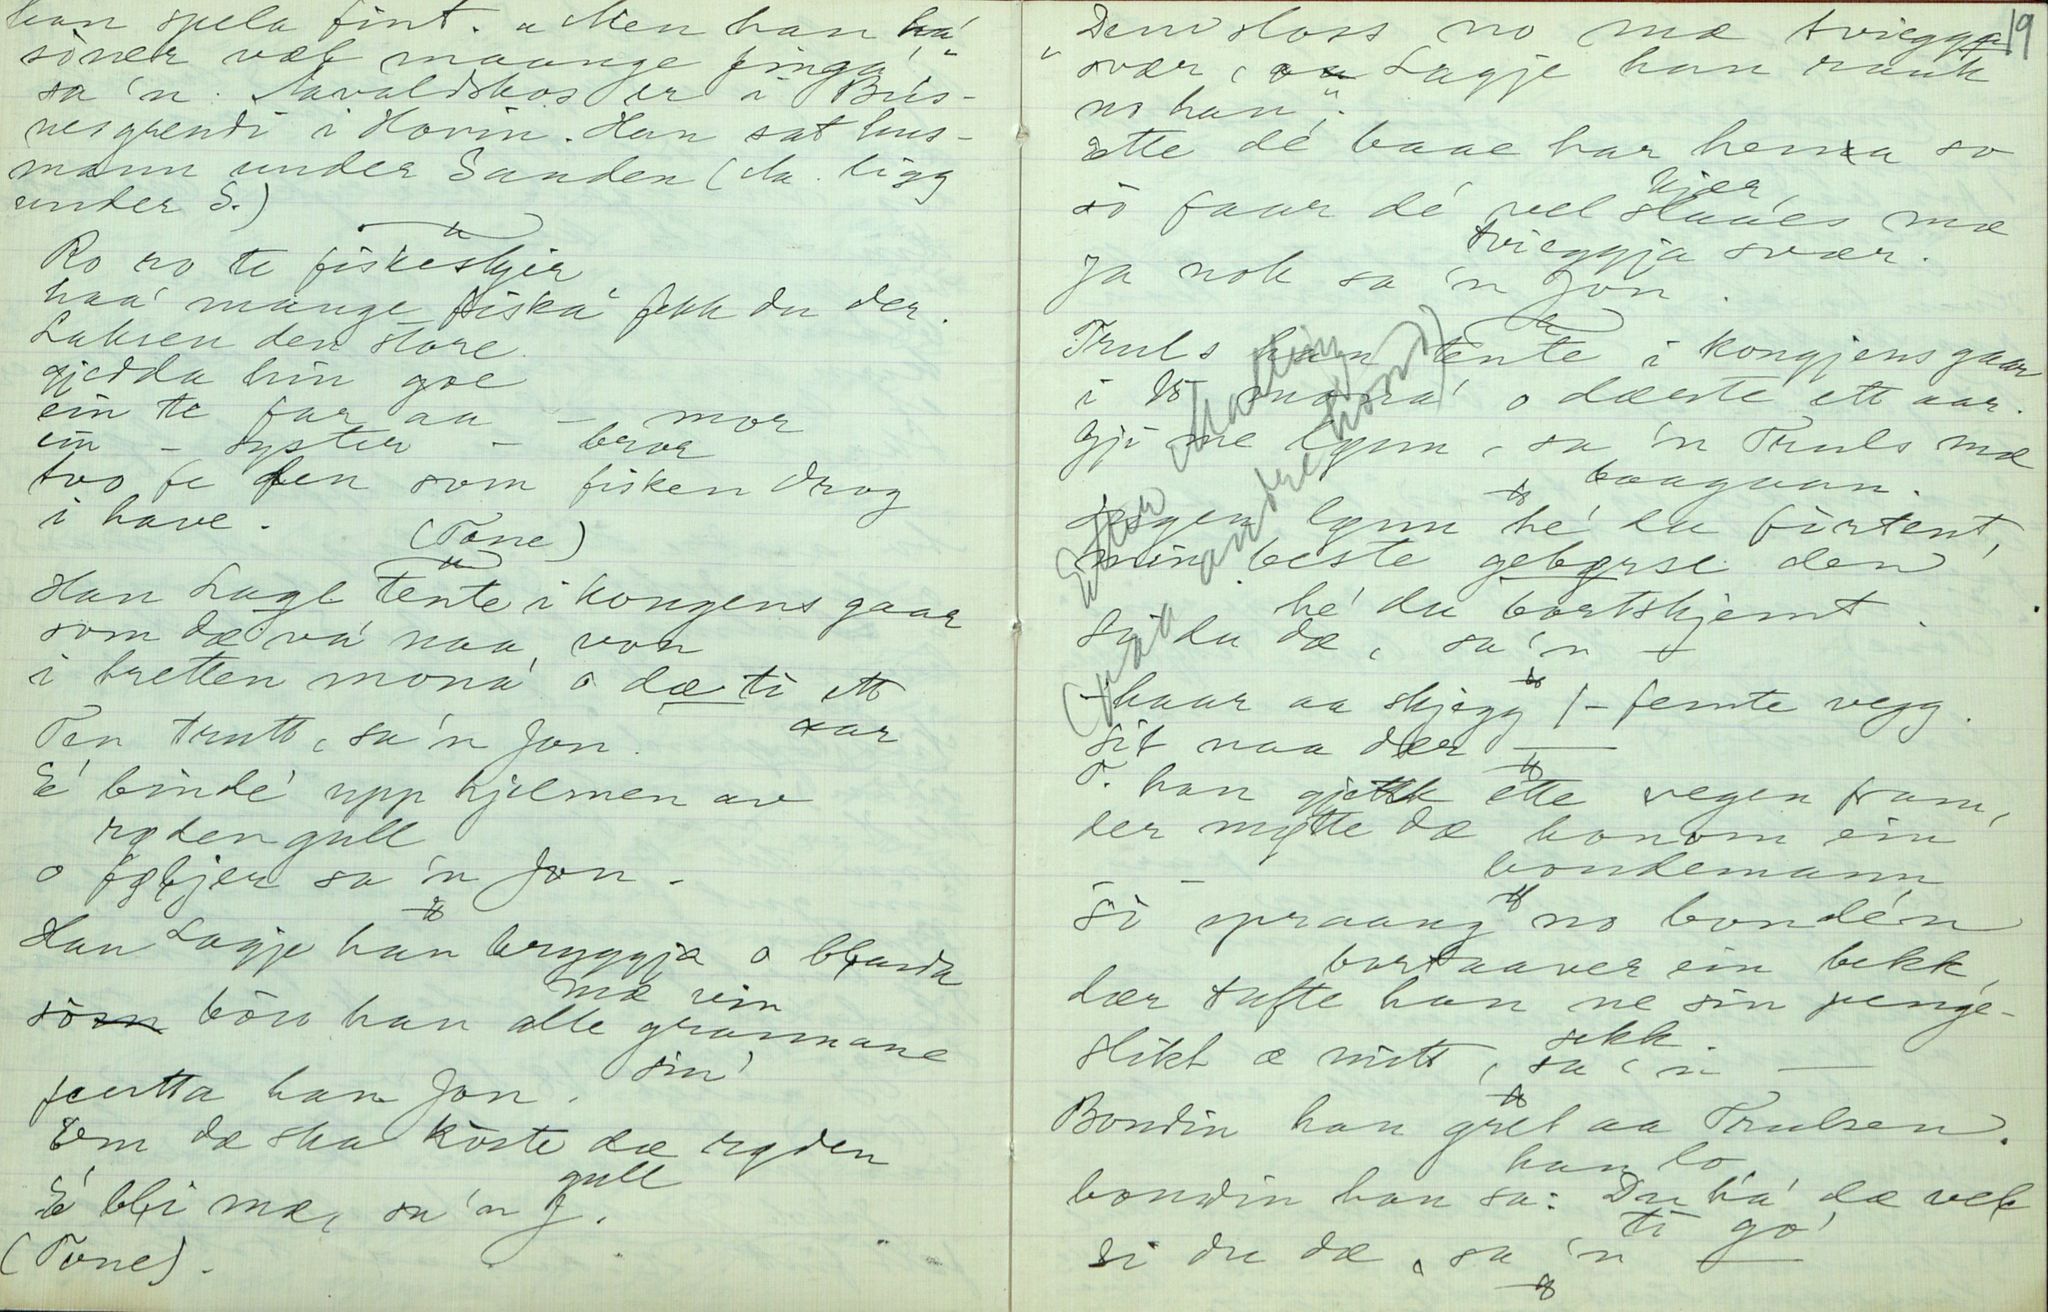 han spela fint. "Men han há
söner væl maange finga',"
sa 'n. Navaldskos er i Bús-
nesgrendi i Hovin. Han sat hus-
mann under Sanden (da. ligg
under S.)
Ro ro te fiskeskjer
haa' mange fiska fekk du der.
Laksen den store
gjedda hin goe
ein te far aa – mor
ein – syster – bror
tvo fe den som fisken drog
i have.
(Tone)
Han Lage tente i kongens gaar
som dæ vá naa von
i tretten moná o dæ ti ett
aar
Ten trutt, sa 'n Jon.
É bindé upp hjelmen av
røden gull
o følgjer sa 'n Jon.
Han Lagje han bryggja o blanda
mæ vin
so bøu han alle grannane
sin'
fertta han Jon.
Om dæ ska köste dæ røden
gull
É bli mæ, sa 'n J.
(Tone).
19
"Dem sloss no mæ tvieggja
svær, Lagje han rauk
no han".
Ette dé baae har henna so
so faar dé vel slaaes mæ
kjær
tvieggja svær.
Ja nok sa 'n Jon.
Truls han tente i kongjens gaar
i 18 moná o dæste ett aar.
Gji me lønn, sa 'n Truls mæ
baagaan.
Ingen lønn hé du firtent,
min beste gebørse den
hé du bortskjemt.
Si du dæ, sa 'n —
haar aa skjegg /– femte vegg.
Sit naa dær —
T. han gjekk ette vegen fram,
der møtte dæ honom ein
bondemann
Si spraang no bondén
bortaaver ein bekk,
dær tufte han ne sin penge-
sekk.
Slikt æ mitt, sa 'n —
Bondin han gret aa Trulsen
han lo
bondin han sa: Du há dæ vel
ti go'
Si du dæ, sa 'n —
Etter Martin
(paa andre hona)